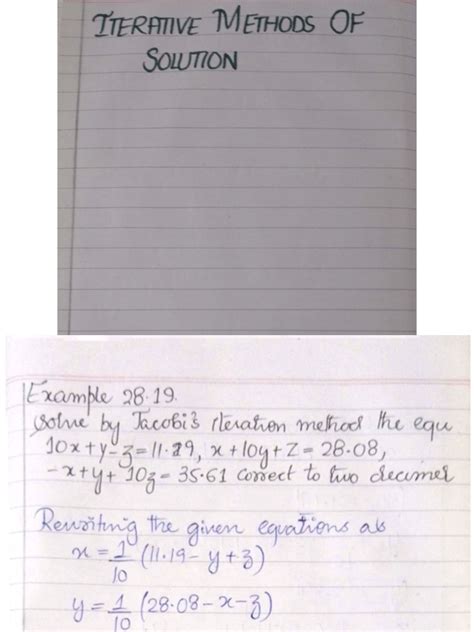 ITERATIVE METHODS OF
SOLUTION
Example 28.19.
Solve by Jacobi's iteration method the equ
10x+y-z=11.19, x+10y+z=28.08,
-x+y+10z=35.61 correct to two decimel
Rewriting the given equations as
x = 1/10 (11.19-y+z)
y = 1/10 (28.08-x-z)